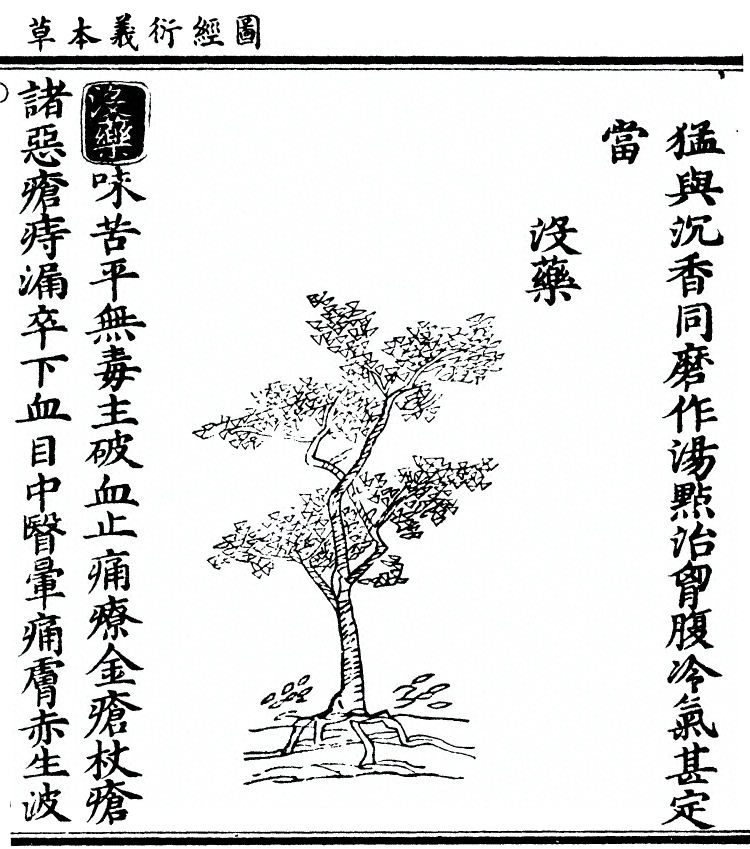 圖經衍義本草
猛與沉香同磨作湯點治胷腹冷氣甚定
當
沒藥
沒藥味苦平無毒主破血止痛療金瘡杖瘡
諸惡瘡痔漏卒下血目中瞖暈痛膚赤生波